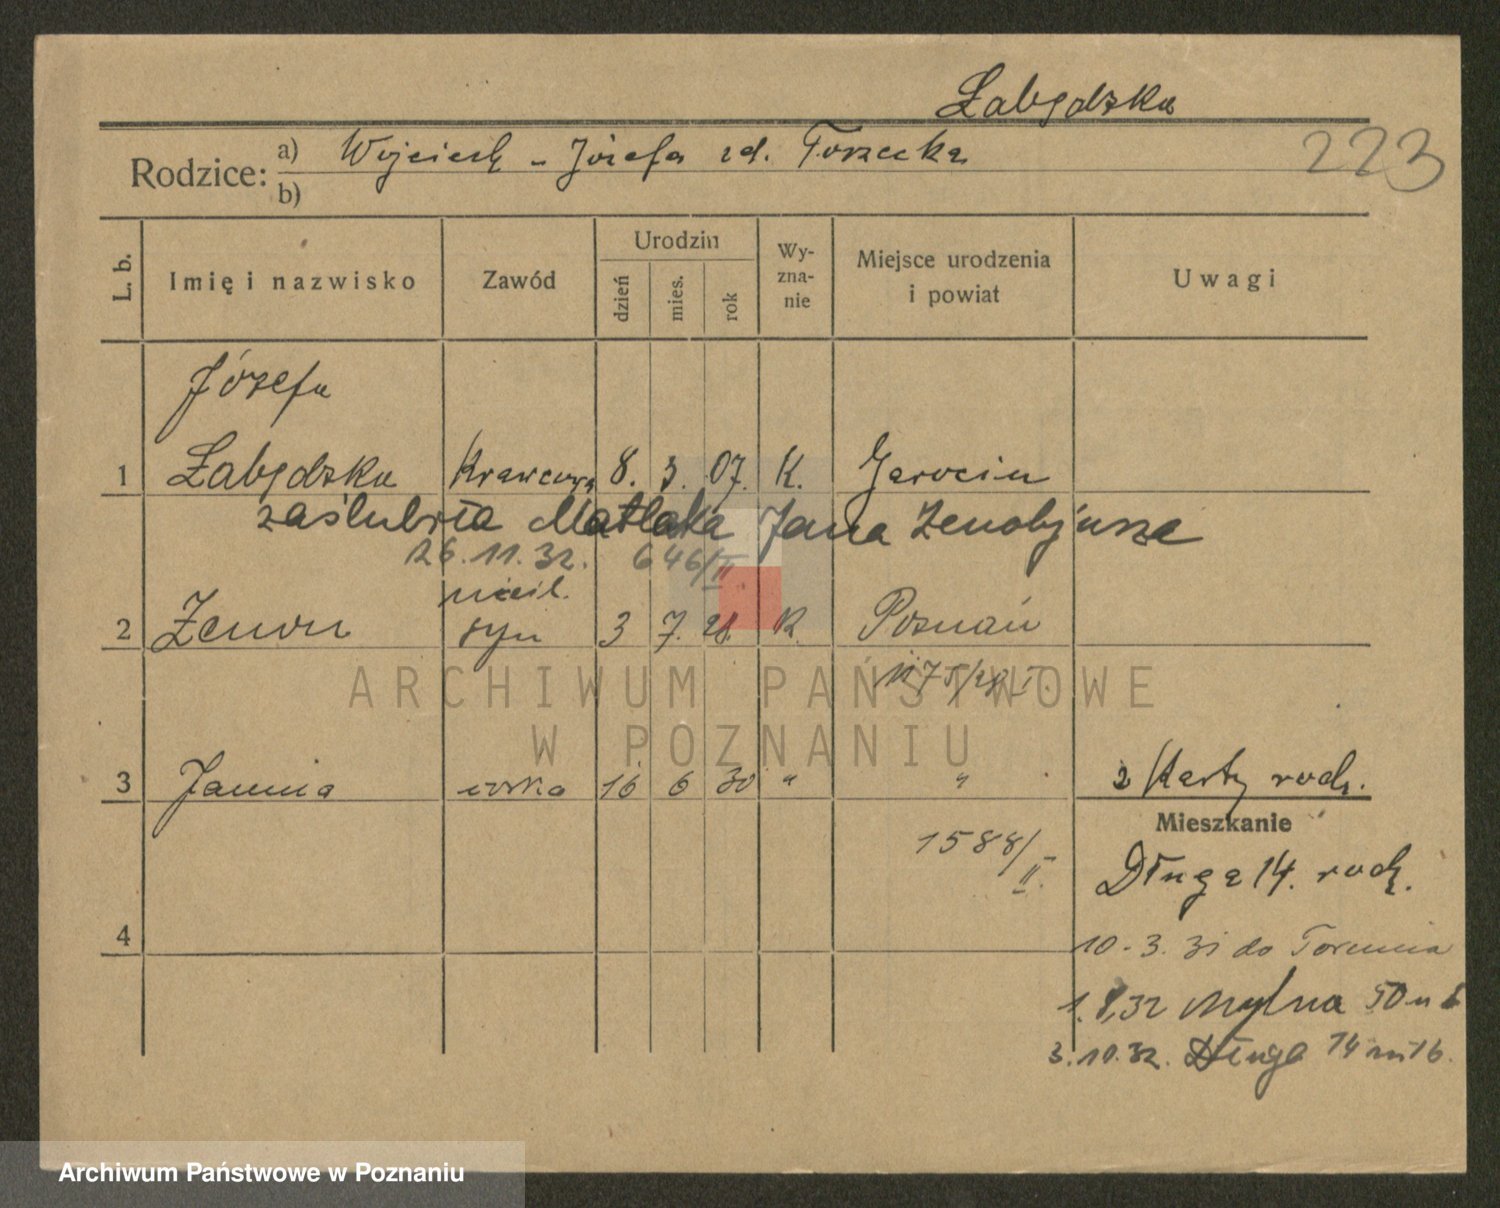 Łabędzka
223
Rodzice: a) Wojciech - Józefa zd. Torzecka
b)
L. b.
Imię i nazwisko
Zawód
Urodzin
dzień
mies.
rok
Wy-
zna-
nie
Miejsce urodzenia
i powiat
Uwagi
Józefa
1 Łabędzka Krawcowa 8. 3. 07. K. Jarocin
zaślubiła Matlaka Jana Zenobjusza
26.11.32. 646/II
nieśl.
2 Zenon syn 3 7. 28. K. Poznań
1175/28 I.
ARCHIWUM PAŃSTWOWE
W POZNANIU
3 Janina córka 16 6 30 " "
2 Karty rodz.
Mieszkanie
1588/II.
Długa 14. rodz.
4
10-3. 31 do Torunia
1. 32 Mylna 50 m 6
3.10.32. Długa 14 m 16.
Archiwum Państwowe w Poznaniu